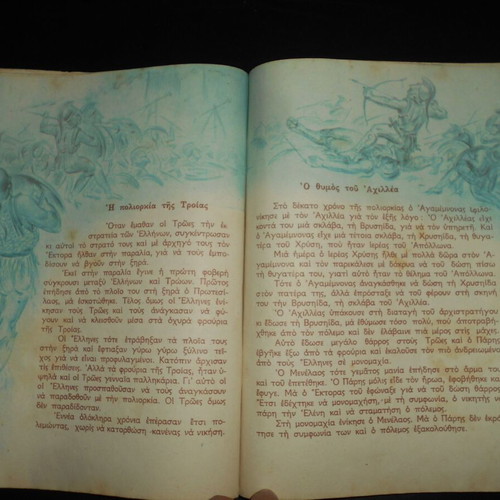 Ἡ πολιορκία τῆς Τροίας
Ὅταν ἔμαθαν οἱ Τρῶες τὴν ἐκ-
στρατεία τῶν Ἑλλήνων, συγκέντρωσαν
κι αὐτοὶ τὸ στρατό τους καὶ μὲ ἀρχηγό τους τὸν
Ἕκτορα ἦλθαν στὴν παραλία, γιὰ νὰ τοὺς ἐμπο-
δίσουν νὰ βγοῦν στὴν ξηρά.
Ἐκεῖ στὴν παραλία ἔγινε ἡ πρώτη φοβερὴ
σύγκρουση μεταξὺ Ἑλλήνων καὶ Τρώων. Πρῶτος
ἐπήδησε ἀπὸ τὸ πλοῖο του στὴ ξηρὰ ὁ Πρωτεσί-
λαος, μὰ ἐσκοτώθηκε. Τέλος ὅμως οἱ Ἕλληνες ἐνί-
κησαν τοὺς Τρῶες καὶ τοὺς ἀνάγκασαν νὰ φύ-
γουν καὶ νὰ κλεισθοῦν μέσα στὰ ὀχυρὰ φρούρια
τῆς Τροίας.
Οἱ Ἕλληνες τότε ἐτράβηξαν τὰ πλοῖα τους
στὴν ξηρὰ καὶ ἔφτιαξαν γύρω γύρω ξύλινο τεῖχος
γιὰ νὰ εἶναι προφυλαγμένοι. Κατόπιν ἄρχισαν
τὶς ἐπιθέσεις. Ἀλλὰ τὰ φρούρια τῆς Τροίας, ἦταν ὑ-
ψηλὰ καὶ οἱ Τρῶες γενναῖα παλληκάρια. Γι' αὐτὸ οἱ
Ἕλληνες προσπαθοῦσαν νὰ τοὺς ἀναγκάσουν
νὰ παραδοθοῦν μὲ τὴν πολιορκία. Οἱ Τρῶες ὅμως
δὲν παραδίδονταν.
Ἐννέα ὁλόκληρα χρόνια ἐπέρασαν ἔτσι πο-
λεμώντας, χωρὶς νὰ κατορθώση κανένας νὰ νικήση.
Ὁ θυμὸς τοῦ Ἀχιλλέα
Στὸ δέκατο χρόνο τῆς πολιορκίας ὁ Ἀγαμέμνονας ἐφιλο-
νίκησε μὲ τὸν Ἀχιλλέα γιὰ τὸν ἑξῆς λόγο: Ὁ Ἀχιλλέας εἶχε
κοντά του μιὰ σκλάβα, τὴ Βρυσηΐδα, γιὰ νὰ τὸν ὑπηρετῆ. Καὶ
ὁ Ἀγαμέμνονας εἶχε μιὰ τέτοια σκλάβα, τὴ Χρυσηΐδα, τὴ θυγα-
τέρα τοῦ Χρύση, ποὺ ἦταν ἱερέας τοῦ Ἀπόλλωνα.
Μιὰ ἡμέρα ὁ ἱερέας Χρύσης ἦλθε μὲ πολλὰ δῶρα στὸν Ἀ-
γαμέμνονα καὶ τὸν παρεκάλεσε μὲ δάκρυα νὰ τοῦ δώση πίσω
τὴ θυγατέρα του, γιατὶ αὐτὸ ἦταν τὸ θέλημα τοῦ Ἀπόλλωνα.
Τότε ὁ Ἀγαμέμνονας ἀναγκάσθηκε νὰ δώση τὴ Χρυσηΐδα
στὸν πατέρα της, ἀλλὰ ἐπρόσταξε νὰ φέρουν στὴ σκηνή
του τὴν Βρυσηΐδα, τὴ σκλάβα τοῦ Ἀχιλλέα.
Ὁ Ἀχιλλέας ὑπάκουσε στὴ διαταγὴ τοῦ ἀρχιστρατήγου
κι ἔδωσε τὴ Βρυσηΐδα, μὰ θύμωσε τόσο πολύ, ποὺ ἀποτραβήχ-
θηκε ἀπὸ τὸν πόλεμο καὶ δὲν ἐλάβαινε πιὰ μέρος στὶς μάχες.
Αὐτὸ ἔδωσε μεγάλο θάρρος στοὺς Τρῶες καὶ ὁ Πάρης
ἐβγῆκε ἔξω ἀπὸ τὰ φρούρια καὶ ἐκαλοῦσε τὸν πιὸ ἀνδρειωμένο
ἀπὸ τοὺς Ἕλληνες σὲ μονομαχία.
Ὁ Μενέλαος τότε γεμᾶτος μανία ἐπήδησε στὸ ἅρμα του
καὶ τοῦ ἐπετέθηκε. Ὁ Πάρης μόλις εἶδε τὸν ἥρωα, ἐφοβήθηκε καὶ
ἔφυγε. Μὰ ὁ Ἕκτορας τοῦ ἐφώναξε γιὰ νὰ τοῦ δώση θάρρος.
Ἔτσι ἐδέχτηκε νὰ μονομαχήση, μὲ τὴ συμφωνία, ὁ νικητὴς νὰ
πάρη τὴν Ἑλένη καὶ νὰ σταματήση ὁ πόλεμος.
Στὴ μονομαχία ἐνίκησε ὁ Μενέλαος. Μὰ ὁ Πάρης δὲν ἐκρά-
τησε τὴ συμφωνία των καὶ ὁ πόλεμος ἐξακολούθησε.